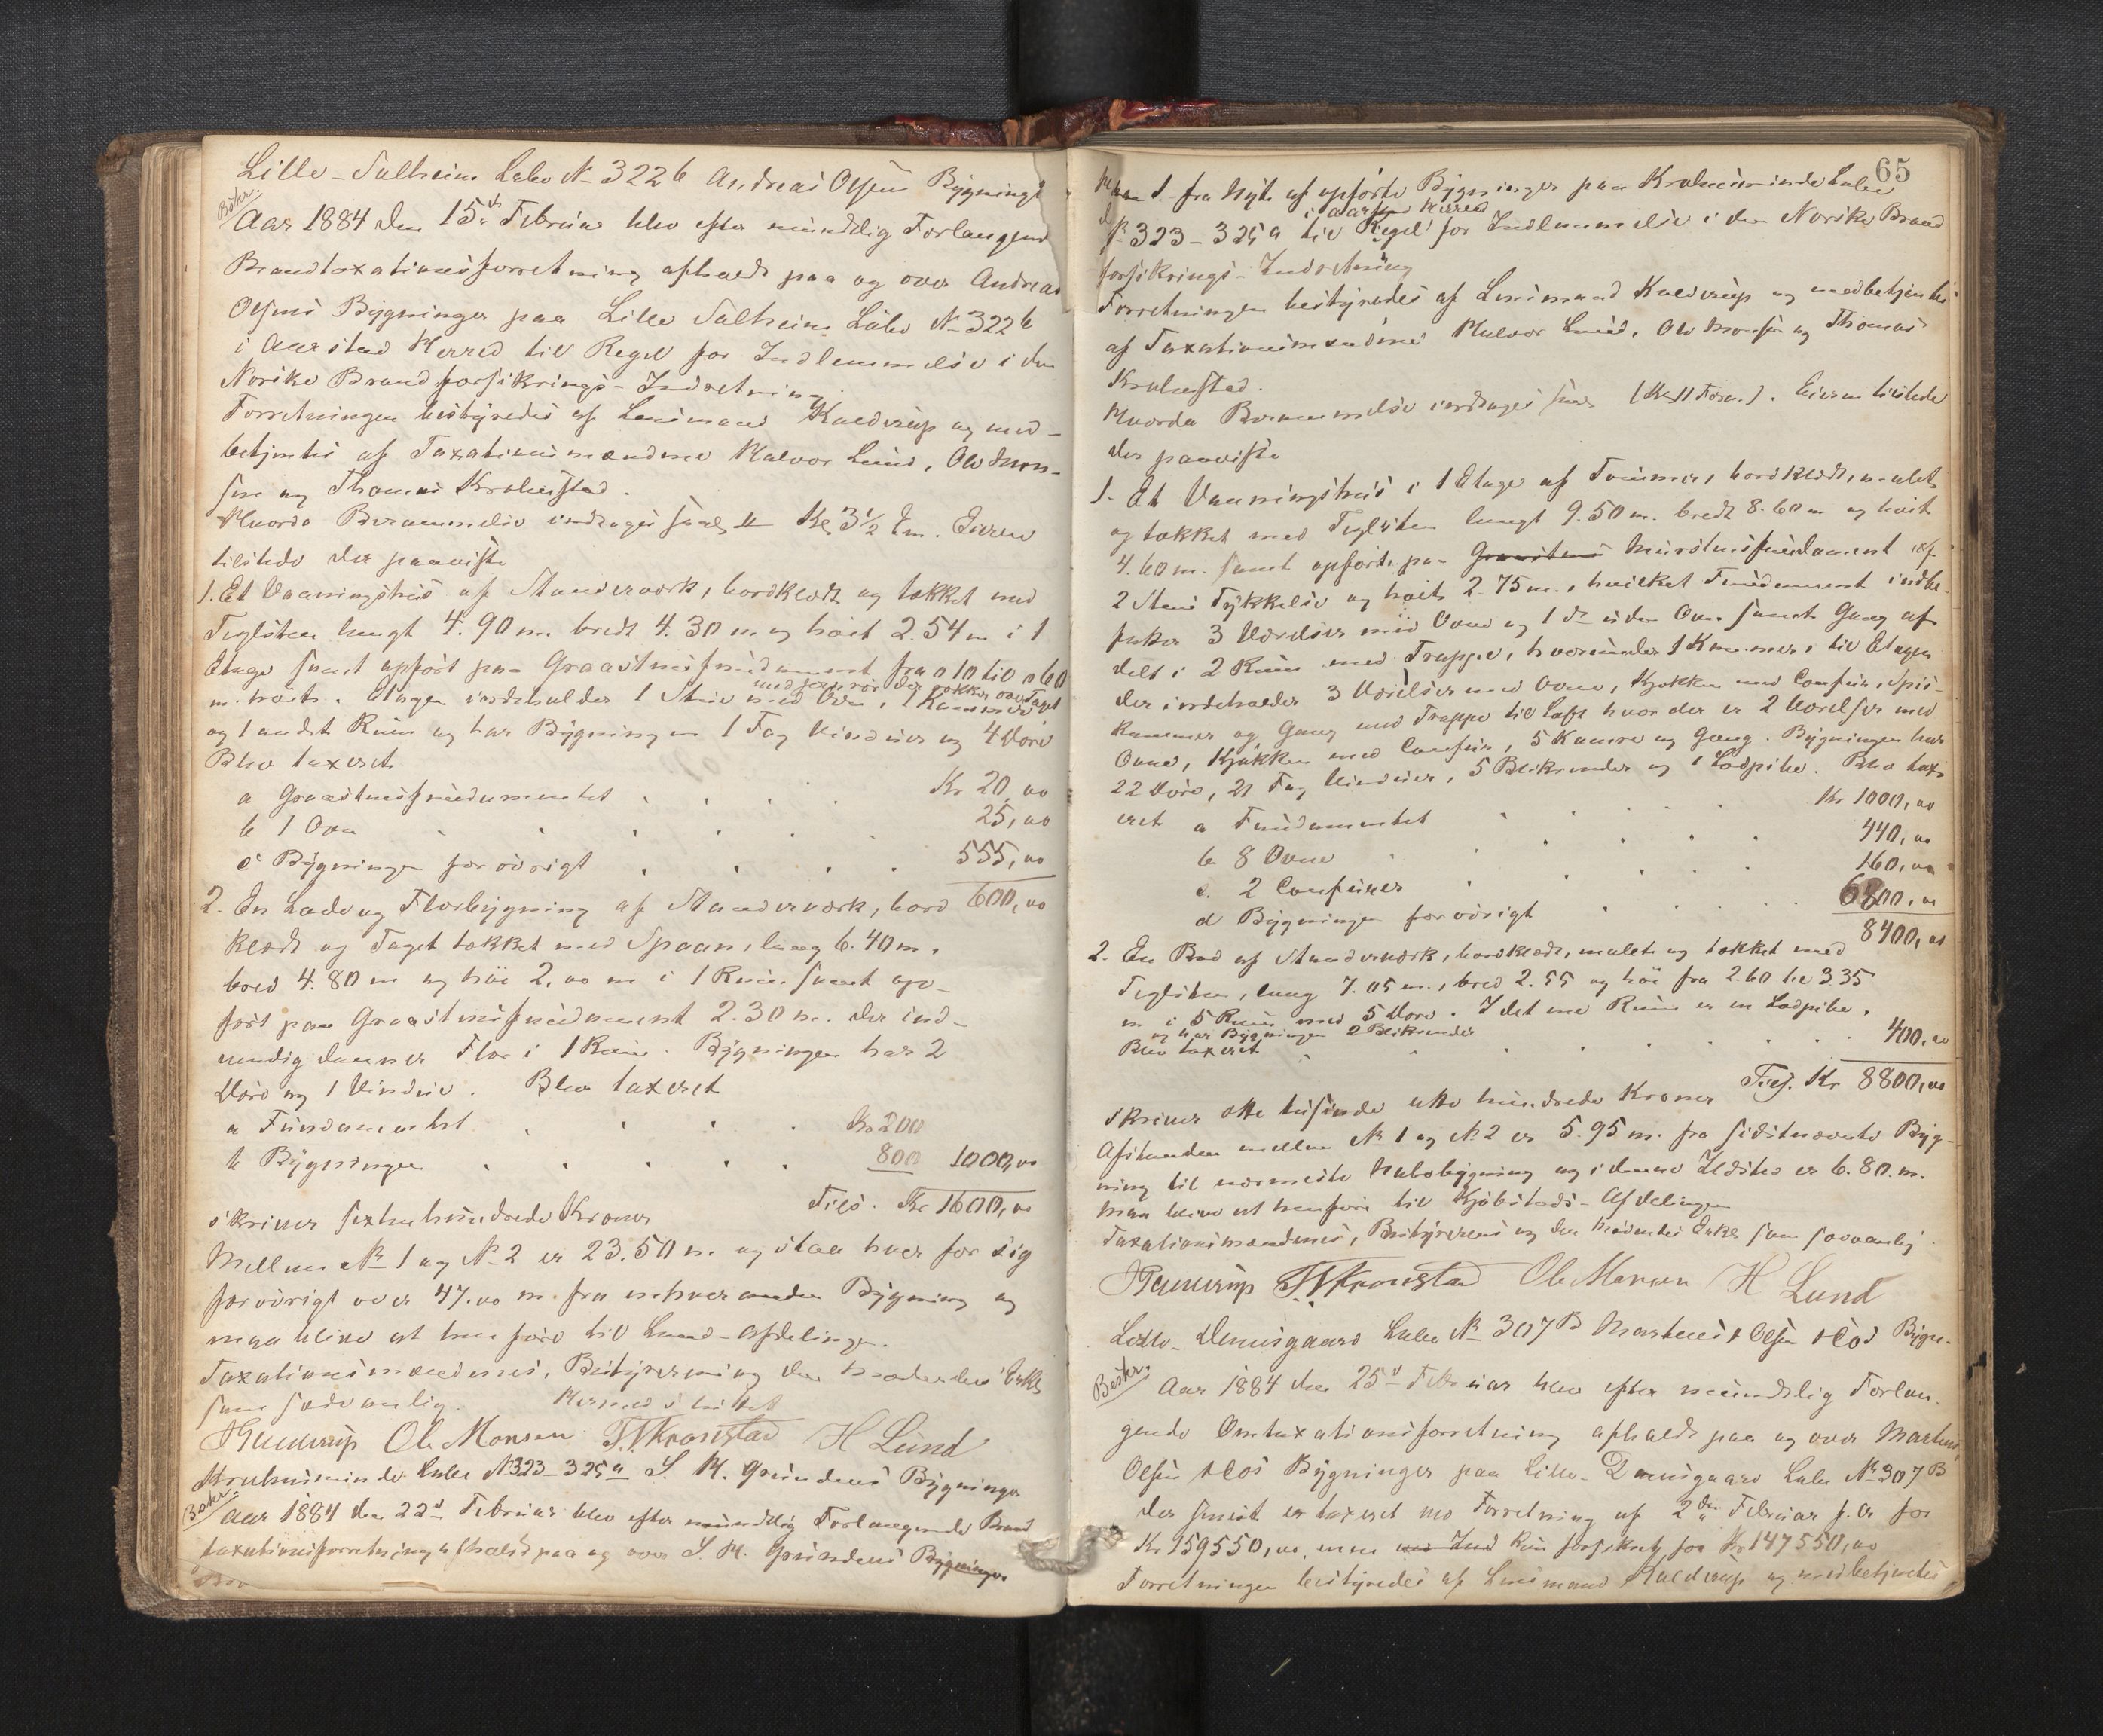 Lille-Solheim Løbe N 322b Andreas Olsens Bygning
Beskr.
Aar 1884 den 15de Februar blev efter mundtlig Forlangende
Brandtaxationsforretning afholdt paa og over Andreas
Olsens Bygninger paa Lille Solheim Løbe N 322b
i Aarstad Herred til Regel for Indlemmelse i den
Norske Brandforsikrings-Indretning
Forretningen bestyredes af Lensmand Kaldrup og med-
betjentes af Taxationsmændene Halvor Lund, Ole Mon-
sen og Thomas Krohnstad.
Hvorda Berammelse indtages saal. Kl 3½ Em. Eieren
tilstede der paaviste
1. Et Vaaningshus af Standerværk, bordklædt og tækket med
Teglsten langt 4.90 m. bredt 4.30 m og høit 2.54 m i 1
Etage samt opført paa Graastensfundament fra 0.10 til 0.60
med Jernrør der rækker over Taget
m. høit. Etagen indeholder 1 Stue med Ovn, 1 Kammer,
og 1 andet Rum og har Bygningen 1 Fag Vinduer og 4 Døre
Blev taxeret
a Graastensfundamentet . . . . Kr 20,00
b 1 Ovn . . . . . 25,00
c Bygningen forøvrigt . . . . 555,00
600,00
2. En Lade og Florbygning af Standerværk, bord
klædt og Taget tækket med Spaan, lang 6.40 m.
bred 4.80 m og høi 2,00 m i 1 Rum samt op-
ført paa Graastensfundament 2.30 m. der ind-
vendig danner Flor i 1 Rum. Bygningen har 2
Døre og 1 Vindue. Blev taxeret
a Fundamentet . . . . Kr 200
b Bygningen . . . . . 800 1000,00
Tils. Kr 1600,00
skriver sextenhundrede Kroner
Mellem N 1 og N 2 er 23.50 m. og staa hver for sig
forøvrigt over 47.00 m fra enhver anden Bygning og
maa blive at henføre til Land-Afdelingen.
Taxationsmændenes, Bestyrerens og den
som sædvanlig. Hermed sluttet
Kaldrup Ole Monsen T. Krohnstad H Lund
Krohnsminde Løbe N 323-325a S. H. Gründens Bygninger
Beskr.
Aar 1884 den 22d Februar blev efter mundtlig Forlangende Brand
taxationsforretning afholdt paa og over S. H. Gründens Bygninger
65
fra Nyt af opførte Bygninger paa Krohnsminde Løbe
i Aarstad Herred
N 323-325a til Regel for Indlemmelse i den Norske Brand
forsikrings-Indretning
Forretningen bestyredes af Lensmand Kaldrup og medbetjentes
af Taxationsmændene Halvor Lund, Ole Monsen og Thomas
Krohnstad.
Hvorda Berammelse indtages saal. (Kl 11 Form.). Eieren tilstede
der paaviste
1. Et Vaaningshus i 1 Etage af Tømmer, bordklædt, malet
og tækket med Teglsten langt 9.50 m. bredt 8.60 m og høit
4.60 m. samt opført paa Graastens Murstensfundament af
2 Stens Tykkelse og høit 2.75 m., hvilket Fundament indbe-
fatter 3 Værelser med Ovne og 1 do uden Ovn samt Gang af
delt i 2 Rum med Trappe, hvorunder 1 Kammer, til Etagen
der indeholder 3 Værelser med Ovne, Kjøkken med Comfur, Spis-
kammer og Gang med Trappe til Loft hvor der er 2 Værelser med
Ovne, Kjøkken med Comfur, 5 Kamre og Gang. Bygningen har
22 Døre, 21 Fag Vinduer, 5 Blikrender og 1 Lodpibe. Blev tax-
eret a Fundamentet . . . . Kr 1000,00
b 8 Ovne . . . . . 440,00
c. 2 Comfurer . . . . . 160,00
d Bygningen forøvrigt . . . . 6800,00
8400,00
2. En Bod af Standerværk, bordklædt, malet og tækket med
Teglsten, lang 7.05 m., bred 2.55 og høi fra 2.60 til 3.35
m i 5 Rum med 5 Døre. I det ene Rum er en Lodpibe.
og har Bygningen 2 Blikrender
Blev taxeret . . . . . 400,00
Tils. Kr 8800,00
skriver otte tusinde otte hundrede Kroner
Afstanden mellem N 1 og N 2 er 5.95 m. fra sidstnævnte Byg-
ning til nærmeste Nabobygning og i denne Ildsted er 6.80 m.
maa blive at henføre til Kjøbstads-Afdelingen
Taxationsmændenes, Bestyrerens og den som sædvanlig.
Kaldrup T. Krohnstad Ole Monsen H Lund
Lille-Damsgaard Løbe N 307B Martens Olsen & Cos Bygn-
Beskr.
Aar 1884 den 25d Februar blev efter mundtlig Forlan-
gende Omtaxationsforretning afholdt paa og over Martens
Olsen & Cos Bygninger paa Lille-Damsgaard Løbe N 307B
der senest er taxeret ved Forretning af 2den Februar f. A. for
Kr 159550,00, men kun forsikret for Kr 147550,00
Forretningen bestyredes af Lensmand Kaldrup og medbetjentes